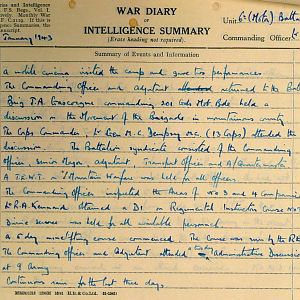 ries and Intelligence
F.S. Regs., Vol. I.
tively. Monthly War
WAR DIARY
OR
INTELLIGENCE SUMMARY
(Erase heading not required).
Unit 6 (Motor) Batt
Commanding Officer
January 1943
Summary of Events and Information
a mobile cinema visited the camp and gave two performances.
The Commanding Officer and Adjutant returned to the Batt
Brig J.A. Gascoigne commanding 201 Gds Mot Bde, held a
discussion on the Movement of the Brigade in mountainous country
The Corps Commander, Lt Gen M.C. Dempsey M.C. (13 Corps) attended the
discussion. The Battalion syndicate consisted of the Commanding
Officer, Senior Major, Adjutant, Transport Officer and A/Quartermaster
A T.E.W.T. on "Mountain Warfare" was held for all officers
The Commanding officer inspected the Areas of No 3 and 4 Companies
Lt R.A. Kennard attended a D+ M Regimental Instructor Course No
Divine service was held for all available personnel.
A 5 day minelifting course commenced. The course was run by the R.E
The Commanding officer and Adjutant attended a study Administrative Discussion
at 9 Army
Continuous rain for the last three days.